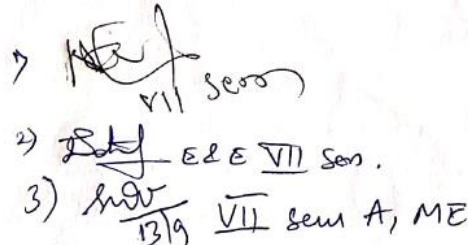 1)
VII sem
2) E & E VII Sem.
3) 13/9 VII sem A, ME